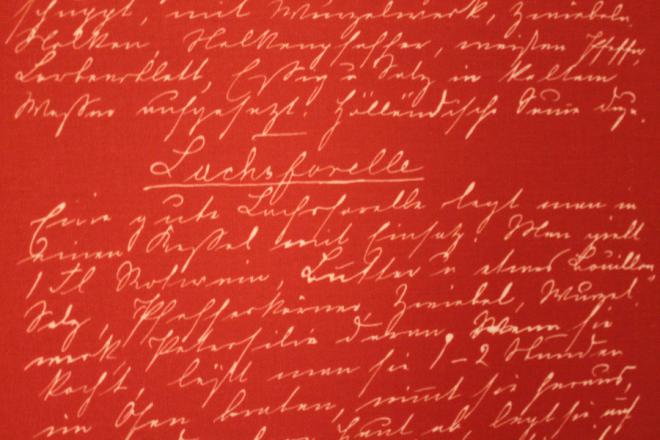 schuppt, mit Wurzelwerk, Zwiebeln,
Nelken, Nelkenpfeffer, weißen Pfeffer,
Lorbeerblatt, Essig u Salz in kaltem
Wasser aufgesetzt. Holländische dazu.
Lachsforelle
Eine gute Lachsforelle legt man in
einen Kessel mit Einsatz. Man gießt
1 Fl Rotwein, Butter u etwas Bouillon,
Salz, Pfefferkörner, Zwiebel, Wurzel
werk, Petersilie daran. Wenn sie
kocht, läßt man sie 1-2 Stunden
im Ofen braten, nimmt sie heraus,
Haut ab, legt sie auf